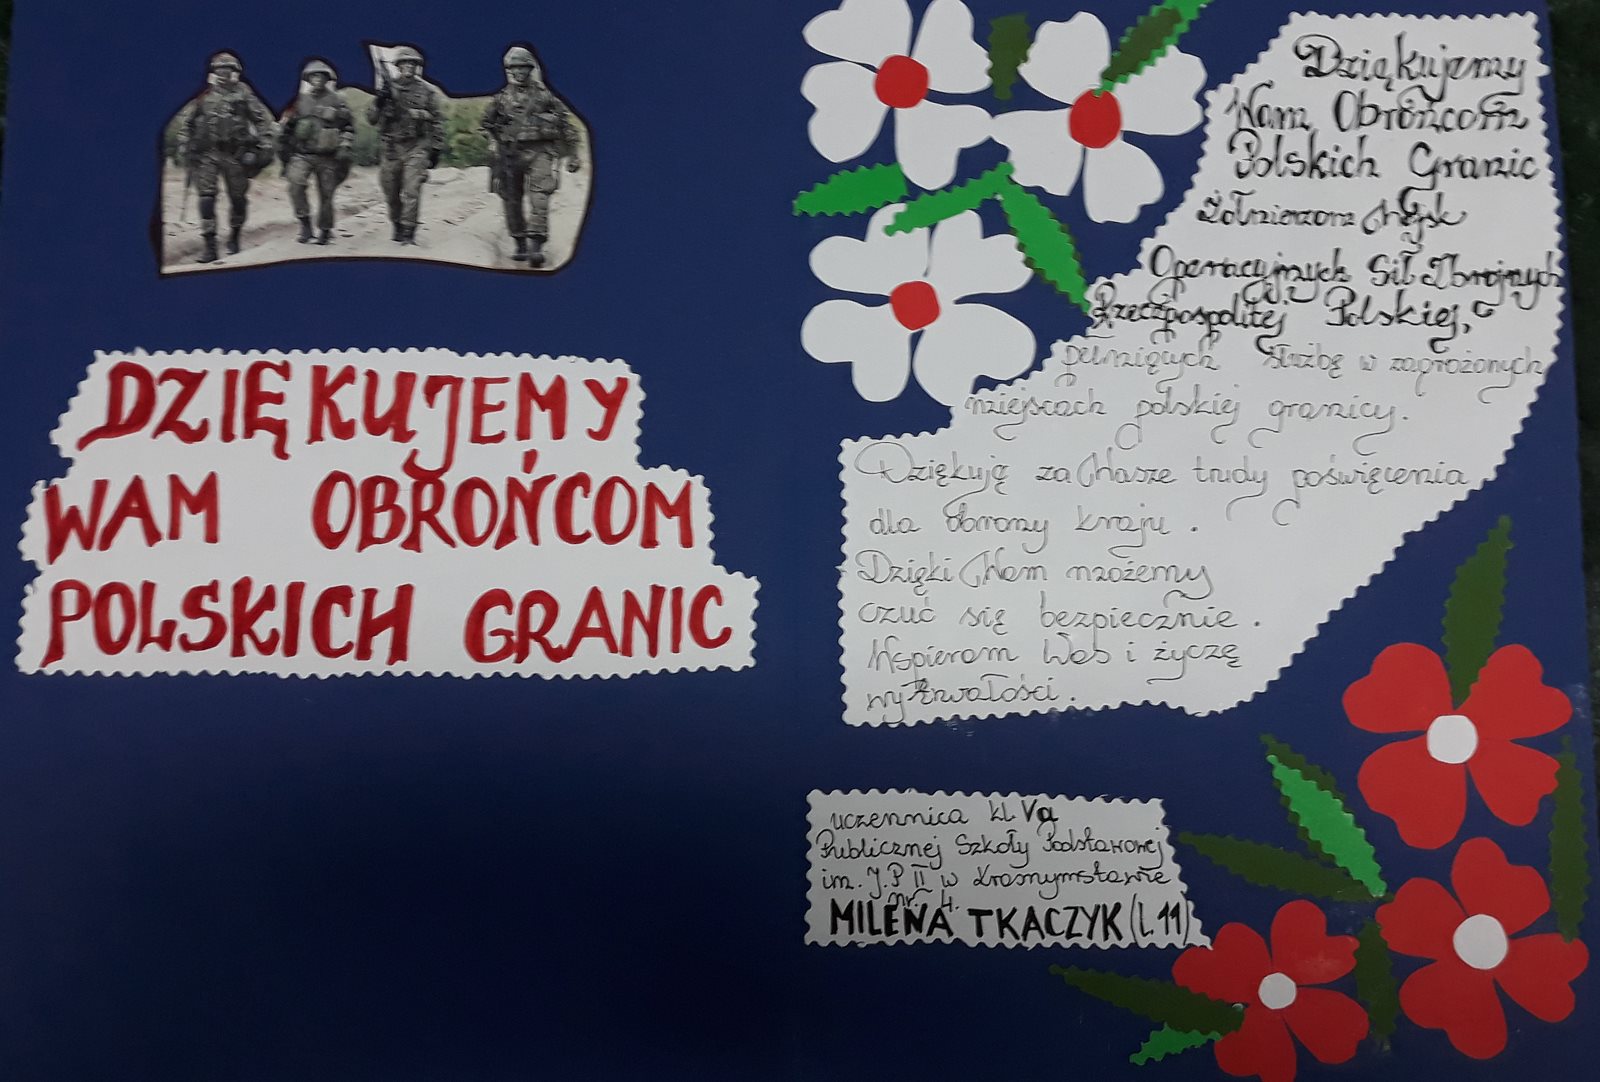 DZIĘKUJEMY
WAM OBROŃCOM
POLSKICH GRANIC
Dziękujemy
Wam Obrońcom
Polskich Granic
Żołnierzom Wojsk
Operacyjnych Sił Zbrojnych
Rzeczpospolitej Polskiej,
pełniących służbę w zagrożonych
miejscach polskiej granicy.
Dziękuję za Wasze trudy poświęcenia
dla obrony kraju.
Dzięki Wam możemy
czuć się bezpiecznie.
Wspieram Was i życzę
wytrwałości.
uczennica kl. Va
Publicznej Szkoły Podstawowej
im. J.P II w Krasnymstawie
nr. 4.
MILENA TKACZYK (l. 11)